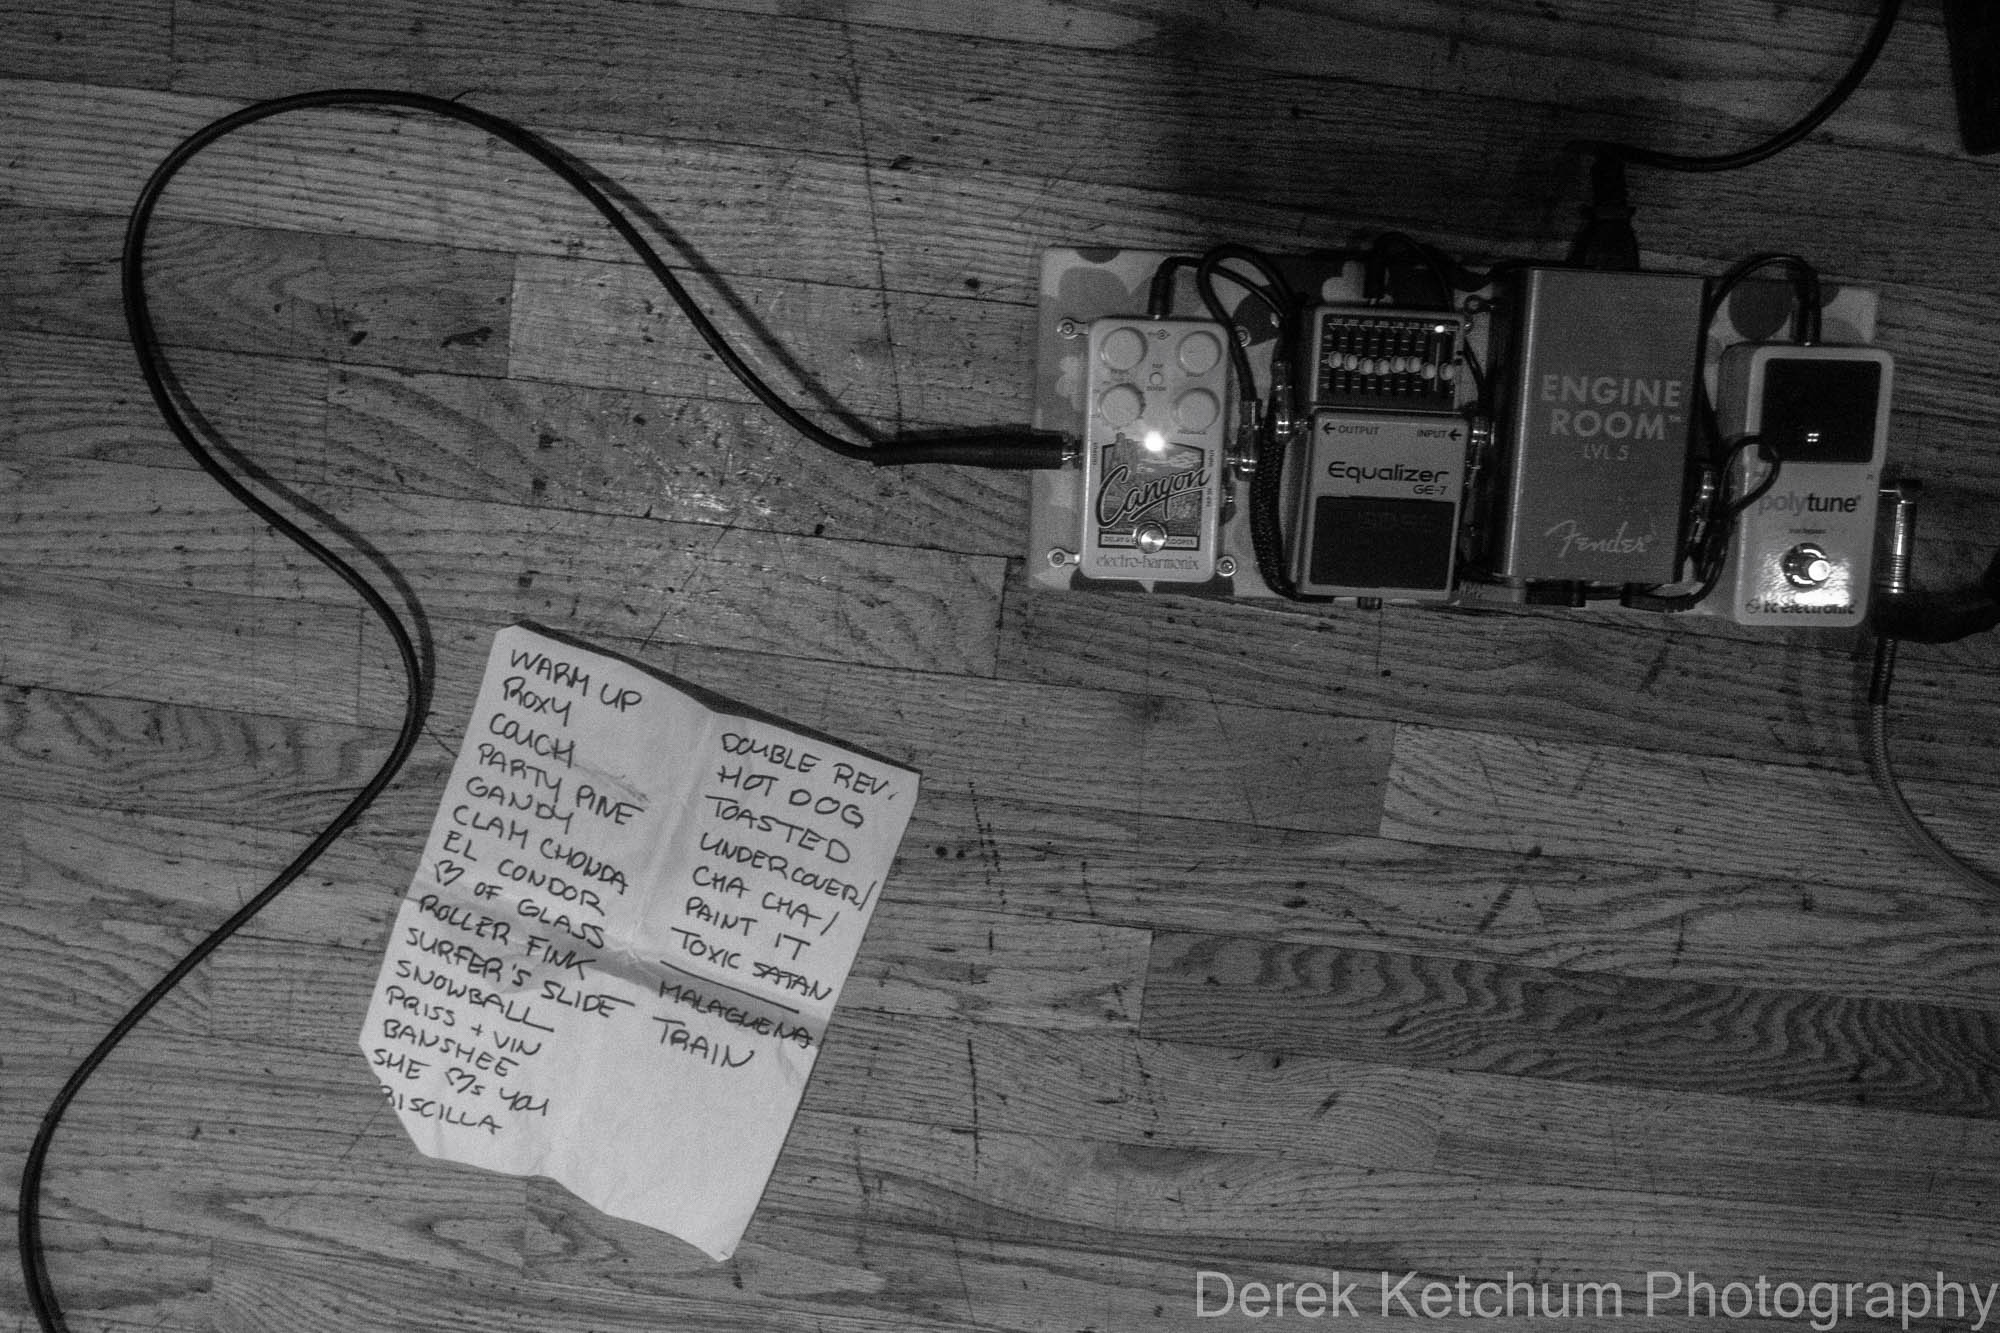 WARM UP
ROXY
COUCH
PARTY PINE
GANDY
CLAM CHOWDA
EL CONDOR
♡ OF GLASS
ROLLER FINK
SURFER'S SLIDE
SNOWBALL
PRISS + VIN
BANSHEE
SHE ♡s YOU
RISCILLA
DOUBLE REV.
HOT DOG
TOASTED
UNDERCOVER/
CHA CHA/
PAINT IT
TOXIC SATAN
MALAGUENA
TRAIN
Canyon
DELAY & LOOPER
electro-harmonix
← OUTPUT INPUT ←
Equalizer
GE-7
ENGINE
ROOM™
LVL 5
Fender
polytune
tc electronic
Derek Ketchum Photography